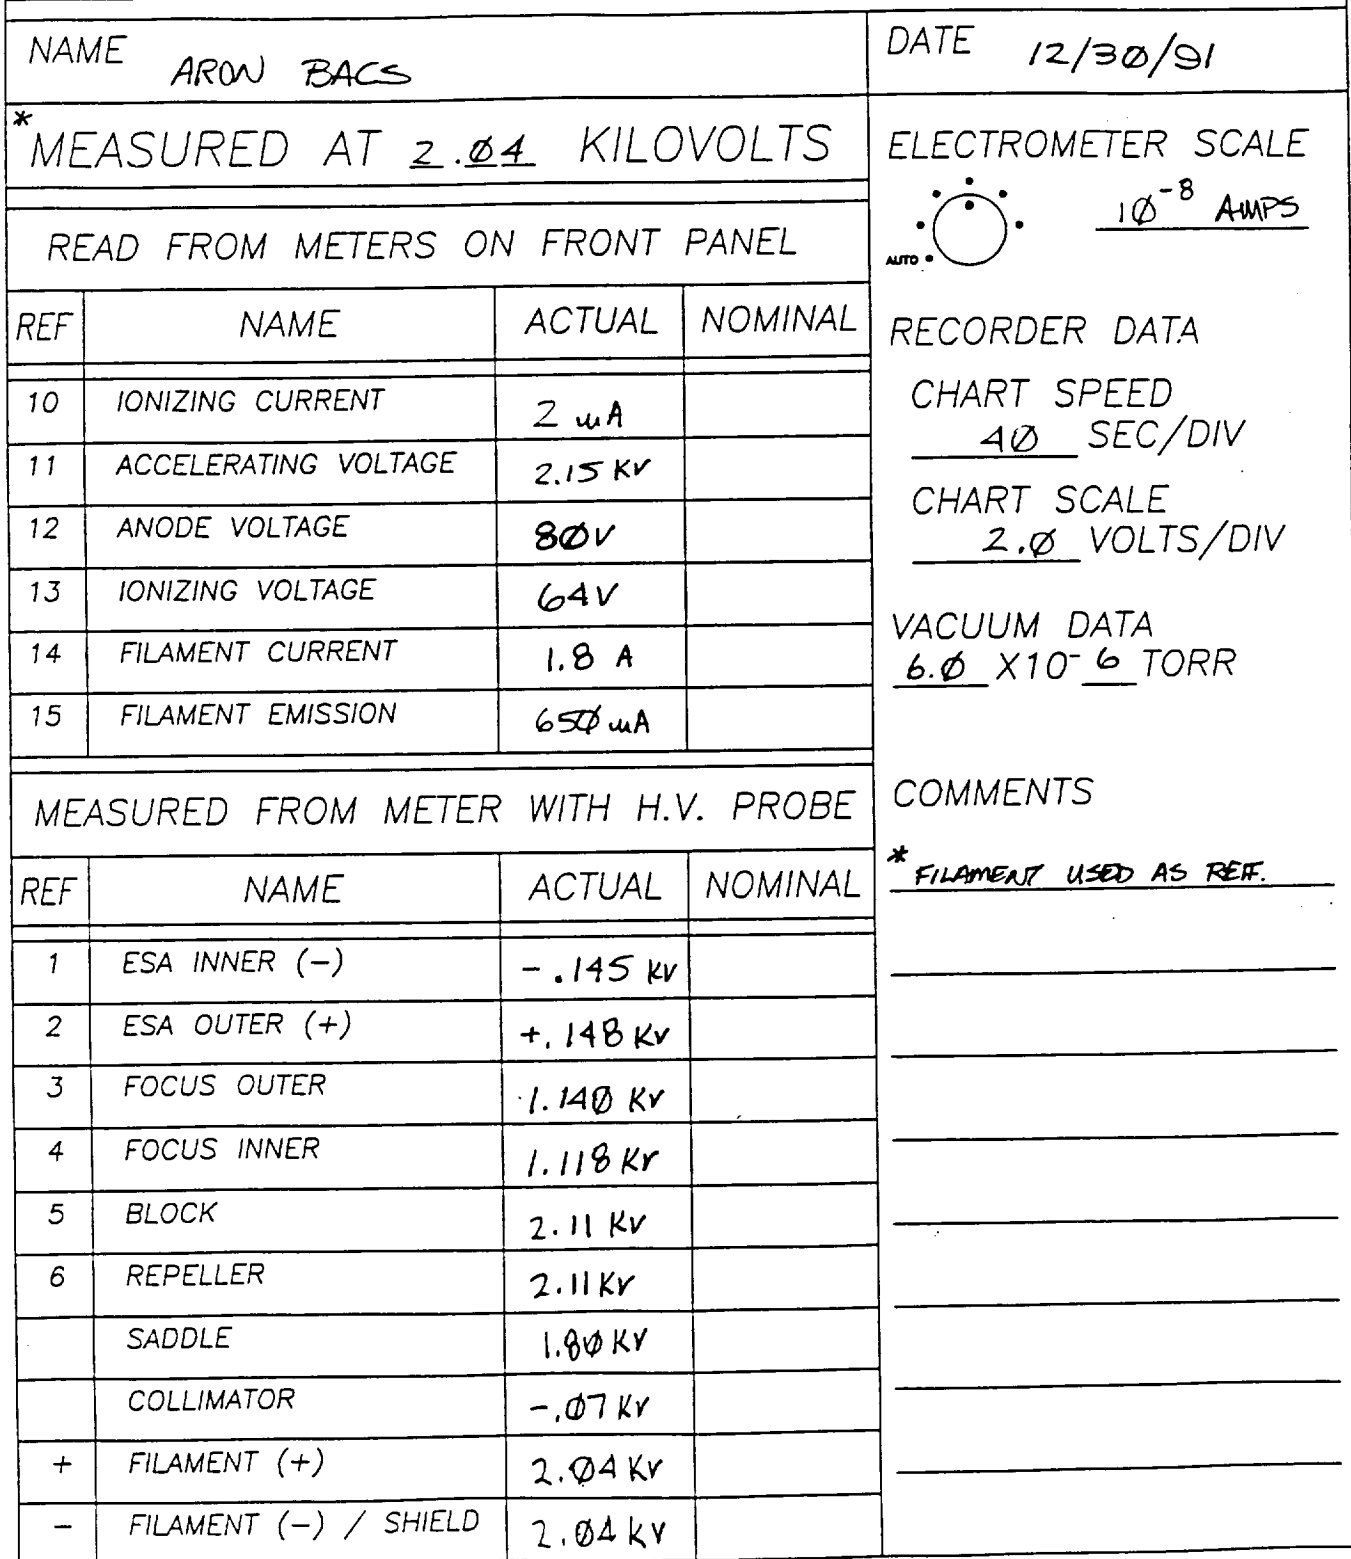 NAME ARON BACS
DATE 12/30/91
*MEASURED AT 2.04 KILOVOLTS
READ FROM METERS ON FRONT PANEL
REF NAME ACTUAL NOMINAL
10 IONIZING CURRENT 2 mA
11 ACCELERATING VOLTAGE 2.15 KV
12 ANODE VOLTAGE 80V
13 IONIZING VOLTAGE 64V
14 FILAMENT CURRENT 1.8 A
15 FILAMENT EMISSION 650 mA
MEASURED FROM METER WITH H.V. PROBE
REF NAME ACTUAL NOMINAL
1 ESA INNER (-) -.145 KV
2 ESA OUTER (+) +.148 KV
3 FOCUS OUTER 1.140 KV
4 FOCUS INNER 1.118 KV
5 BLOCK 2.11 KV
6 REPELLER 2.11 KV
SADDLE 1.80 KV
COLLIMATOR -.07 KV
+ FILAMENT (+) 2.04 KV
- FILAMENT (-) / SHIELD 2.04 KV
ELECTROMETER SCALE
10⁻⁸ AMPS
AUTO
RECORDER DATA
CHART SPEED
40 SEC/DIV
CHART SCALE
2.0 VOLTS/DIV
VACUUM DATA
6.0 X10-6 TORR
COMMENTS
*FILAMENT USED AS REF.